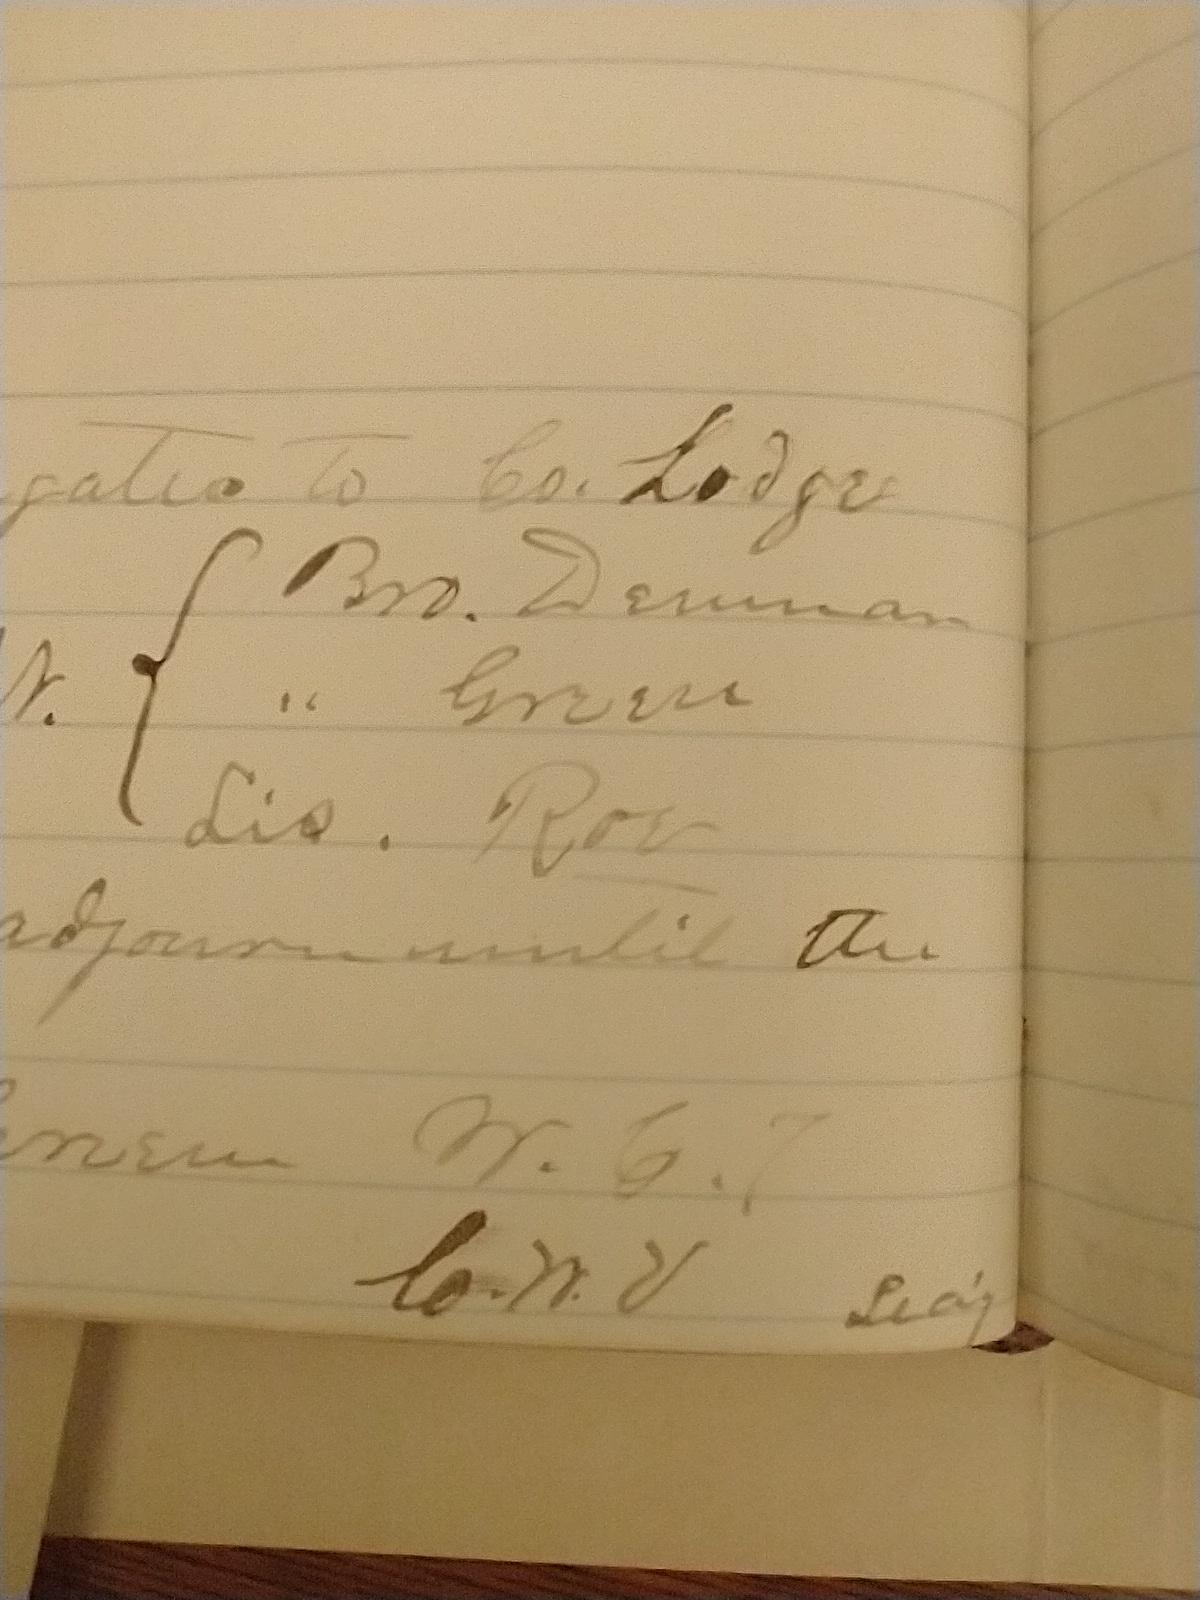 gates to Co. Lodge
N. { Bro. Denman
" Green
Sis. Roe
adjourn until the
Green W. C. T
C. W. V Sec'y